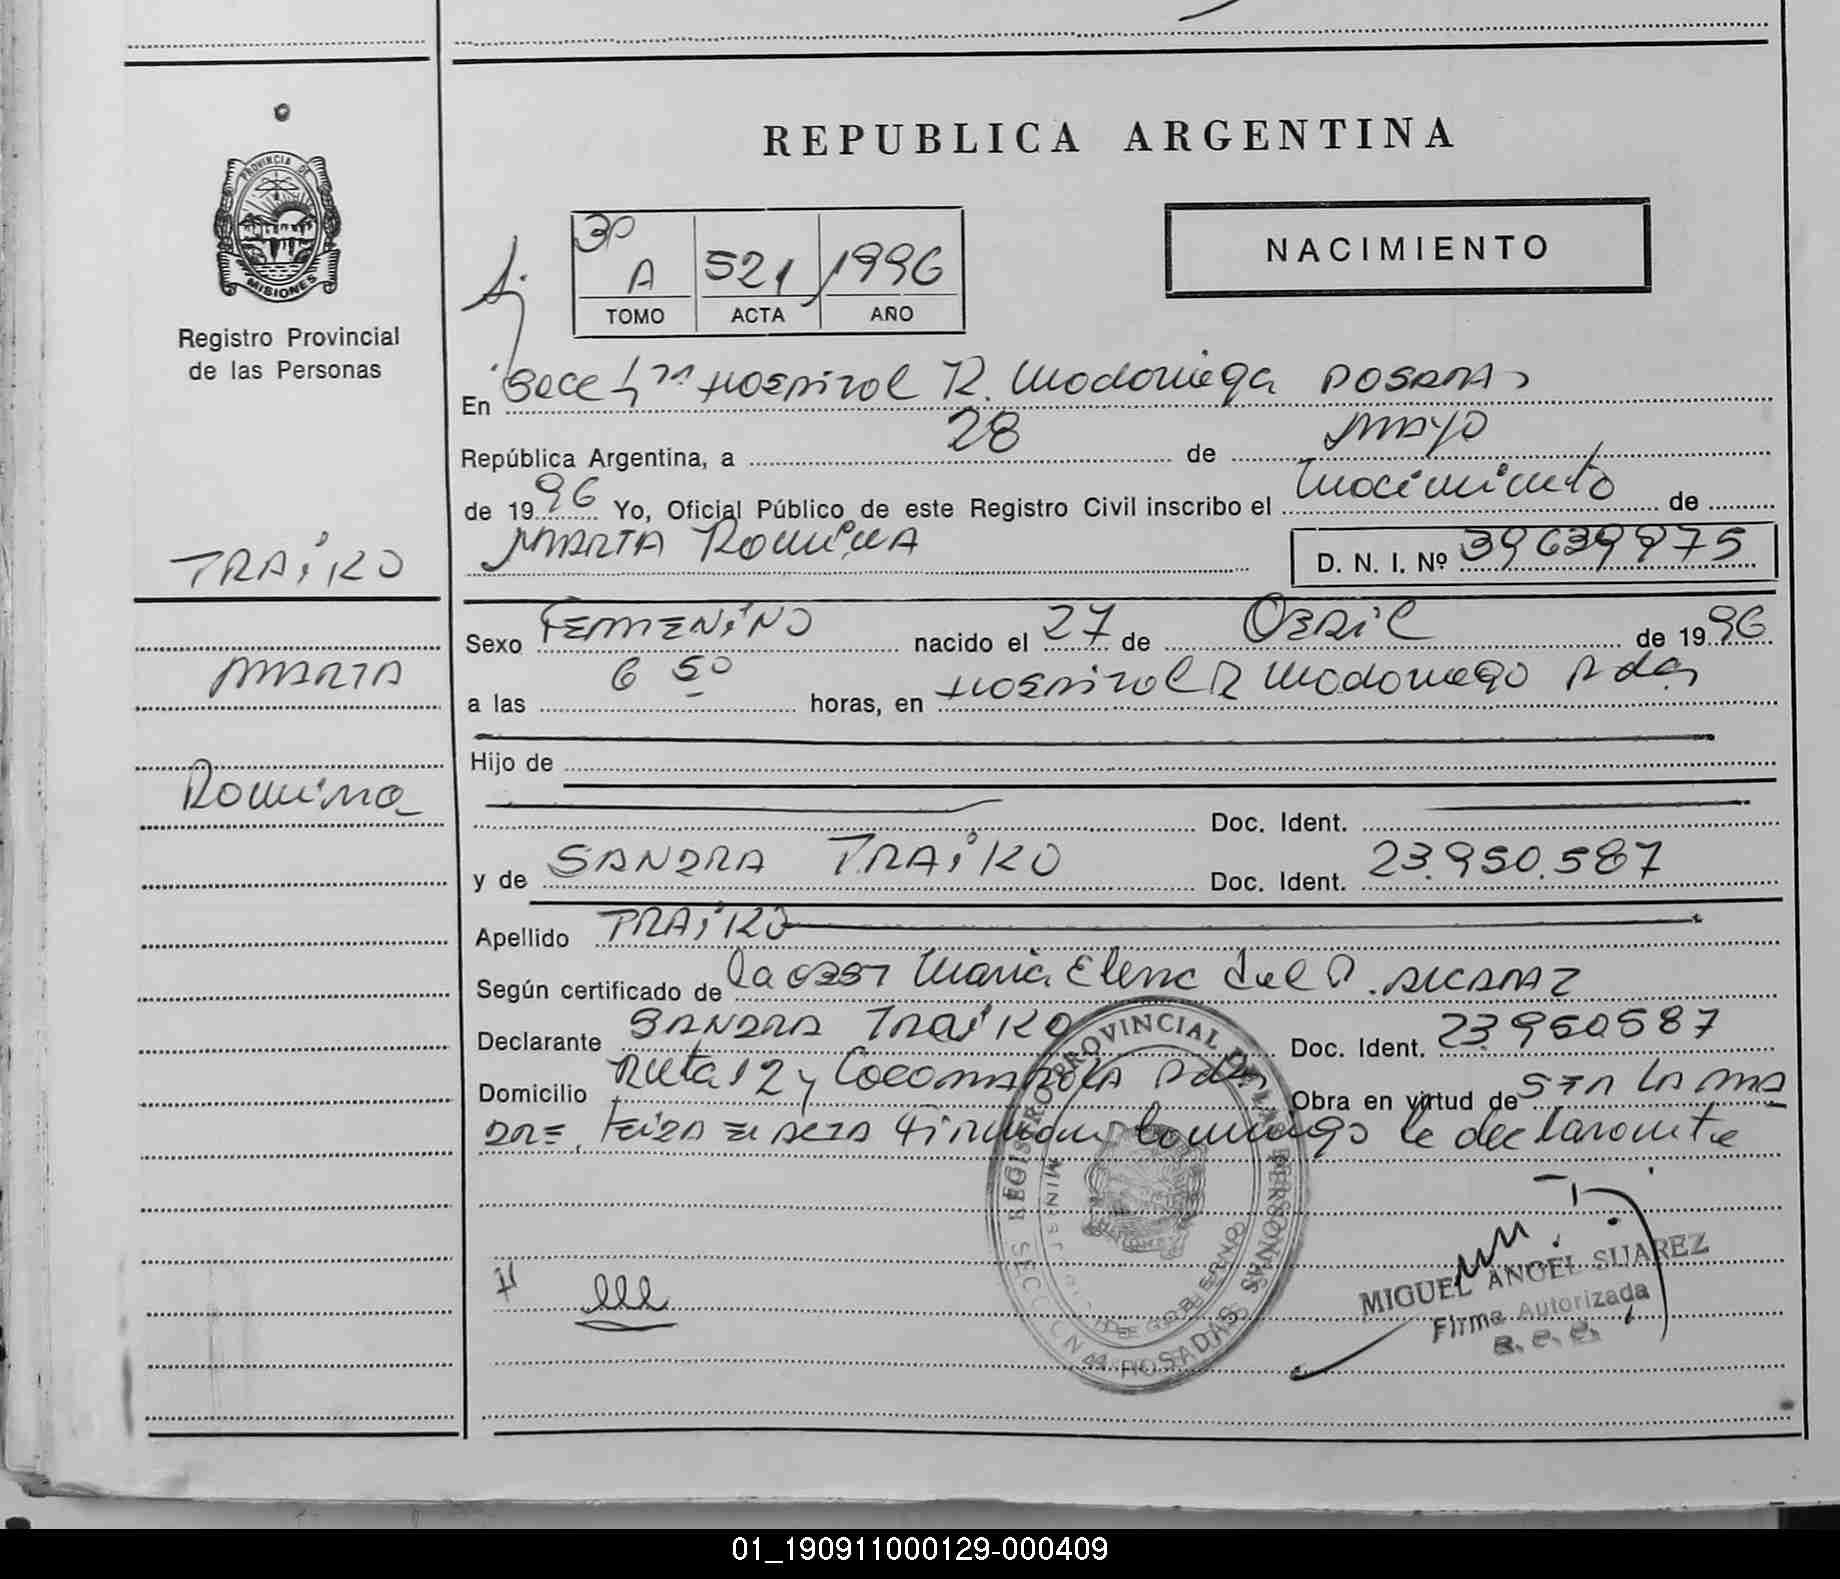 REPUBLICA ARGENTINA
PROVINCIA DE
MISIONES
Registro Provincial
de las Personas
NACIMIENTO
3º
A 521 1996
TOMO ACTA AÑO
En Secc 4ta Hospital R. Madariaga POSADAS
República Argentina, a 28 de MAYO
de 1996 Yo, Oficial Público de este Registro Civil inscribo el nacimiento de
MARTA ROMINA
D. N. I. Nº 39639975
TRAiKO
MARTA
Romina
Sexo FEMENiNO nacido el 27 de ABRiL de 1996
a las 6 50 horas, en Hospital R Madariaga Pdas
Hijo de
Doc. Ident.
y de SANDRA TRAiKO Doc. Ident. 23.950.587
Apellido TRAiKO
Según certificado de la OBST Maria Elena del P. ALCARAZ
Declarante SANDRA TRAiKO Doc. Ident. 23950587
Domicilio Ruta 12 y Cocomarola Pdas Obra en virtud de SER LA MA
DRE, Leida EL ACTA firman conmigo la declarante
REGISTRO PROVINCIAL DE LAS PERSONAS
MINISTERIO DE GOBIERNO
SECCION 4a POSADAS
MIGUEL ANGEL SUAREZ
Firma Autorizada
01_190911000129-000409